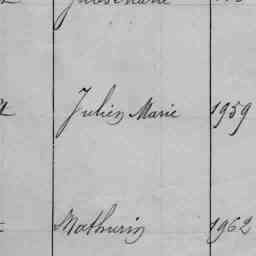 Julien Marie 1959
Mathurin 1962